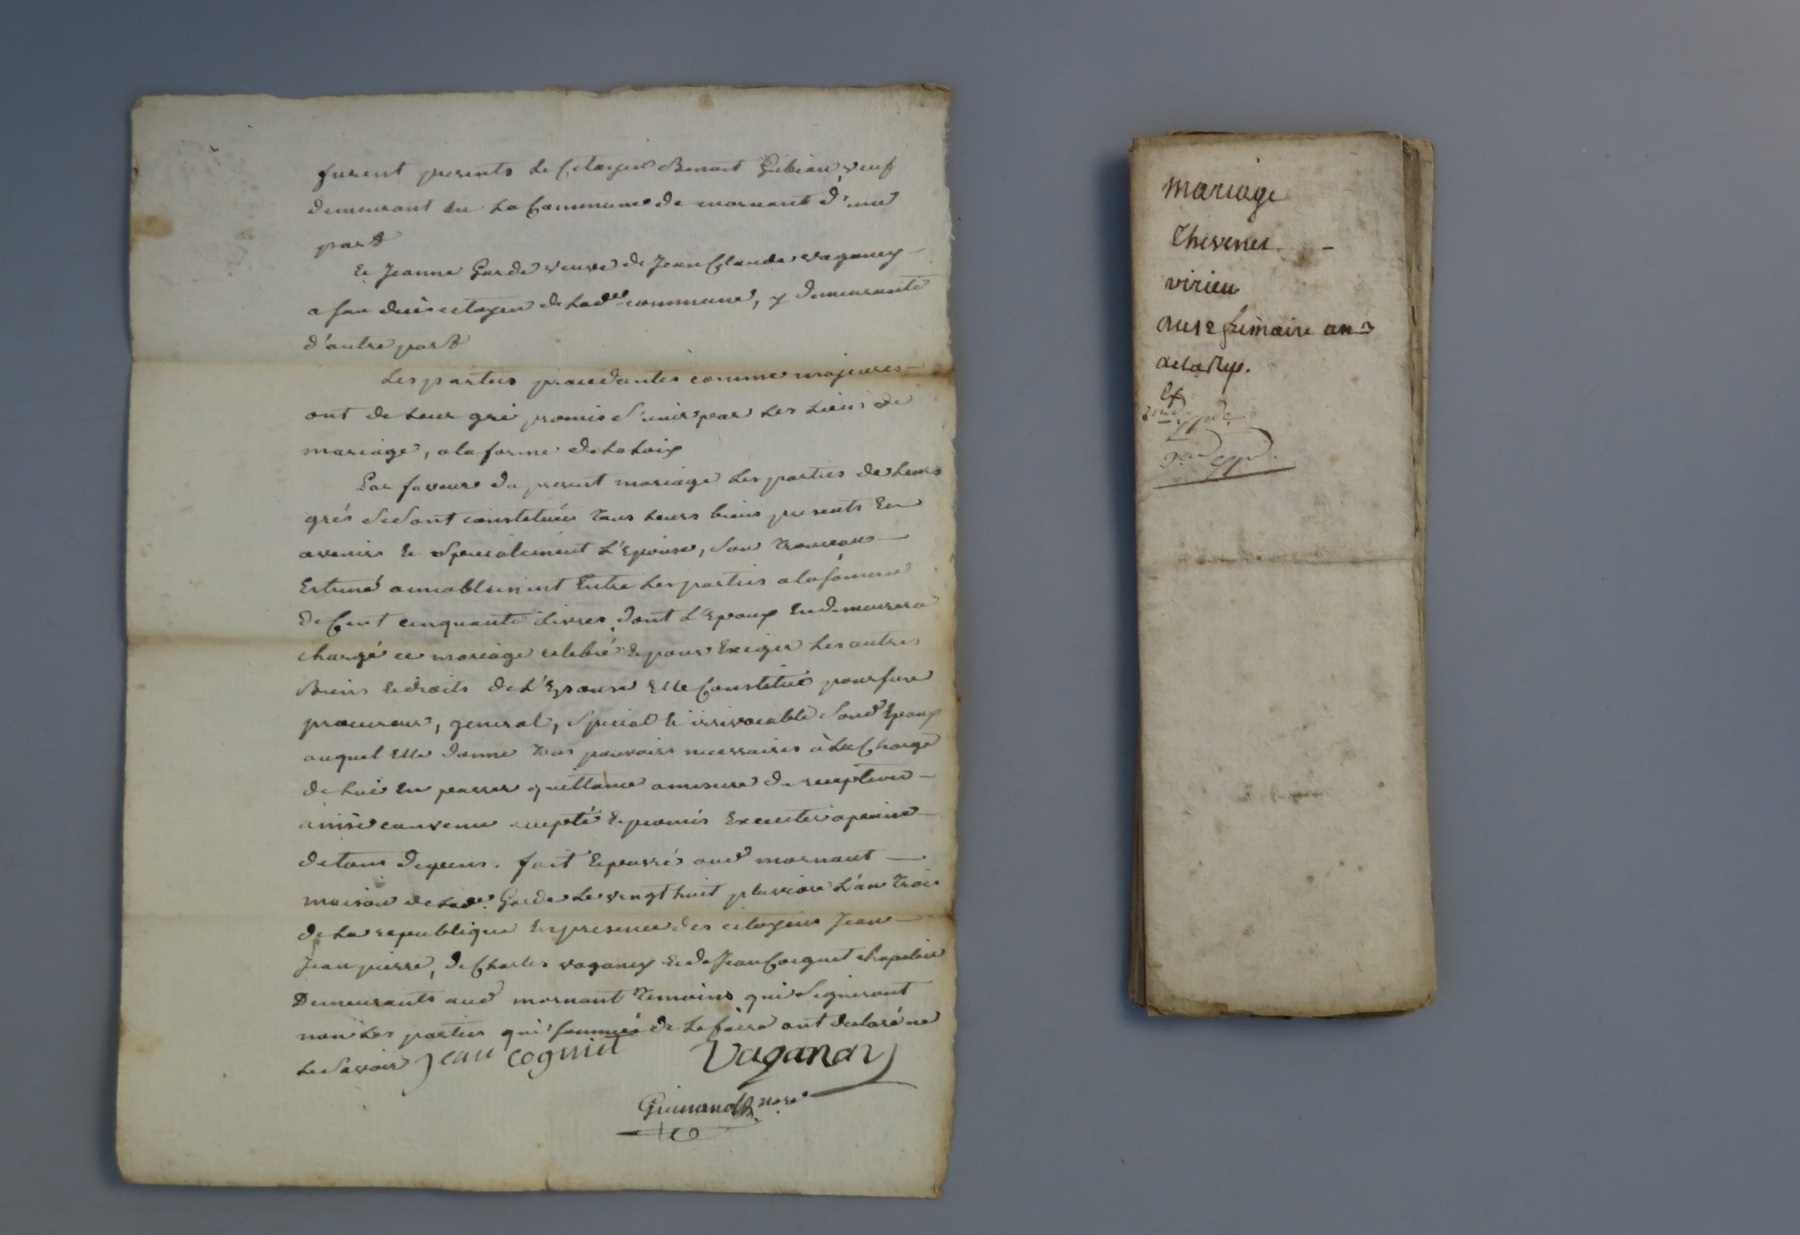 furent presents le Citoyen Benoit Gubian, veuf
demeurant en la Commune de mornant d'une
part
Et Jeanne Garde veuve de Jean Claude vaganey
a son deces citoyen de lade commune, y demeurante
d'autre part
Les parties procedantes comme majeures
ont de leur gré promis s'unir par les liens de
mariage, a la forme de la loix
En faveur du present mariage les parties de leurs
grés se sont constituées tous leurs biens presents Et
avenir Et specialement L'Epouse, son trousseau
Estimé amiablement Entre les parties a la somme
de Cent cinquante livres, dont L'Epoux En demeurera
chargé ce mariage celebré Et pour Exiger les autres
Biens Et droits de L'Epouse Elle Constitue pour son
procureur, general, special Et irrevocable sond Epoux
auquel Elle donne tous pouvoirs necessaires à la Charge
de lui En passer quittance a mesure de reception
ainsi convenu accepté Et promis Executer a peine
de tous depens. fait Et passé aud mornant
maison de lade Garde le vingt huit pluviose L'an trois
de la republique En presence des citoyens Jean
Jean pierre, de Charles vaganey Et de Jean Cognet chapelier
Demeurants aud mornant temoins qui signeront
non les parties qui sommées de le faire ont declaré ne
le savoir Jean cogniet Vaganay
Guinand nore
mariage
Thevenet
virieu
du 12 frimaire an 3
de la Rep.
Ex